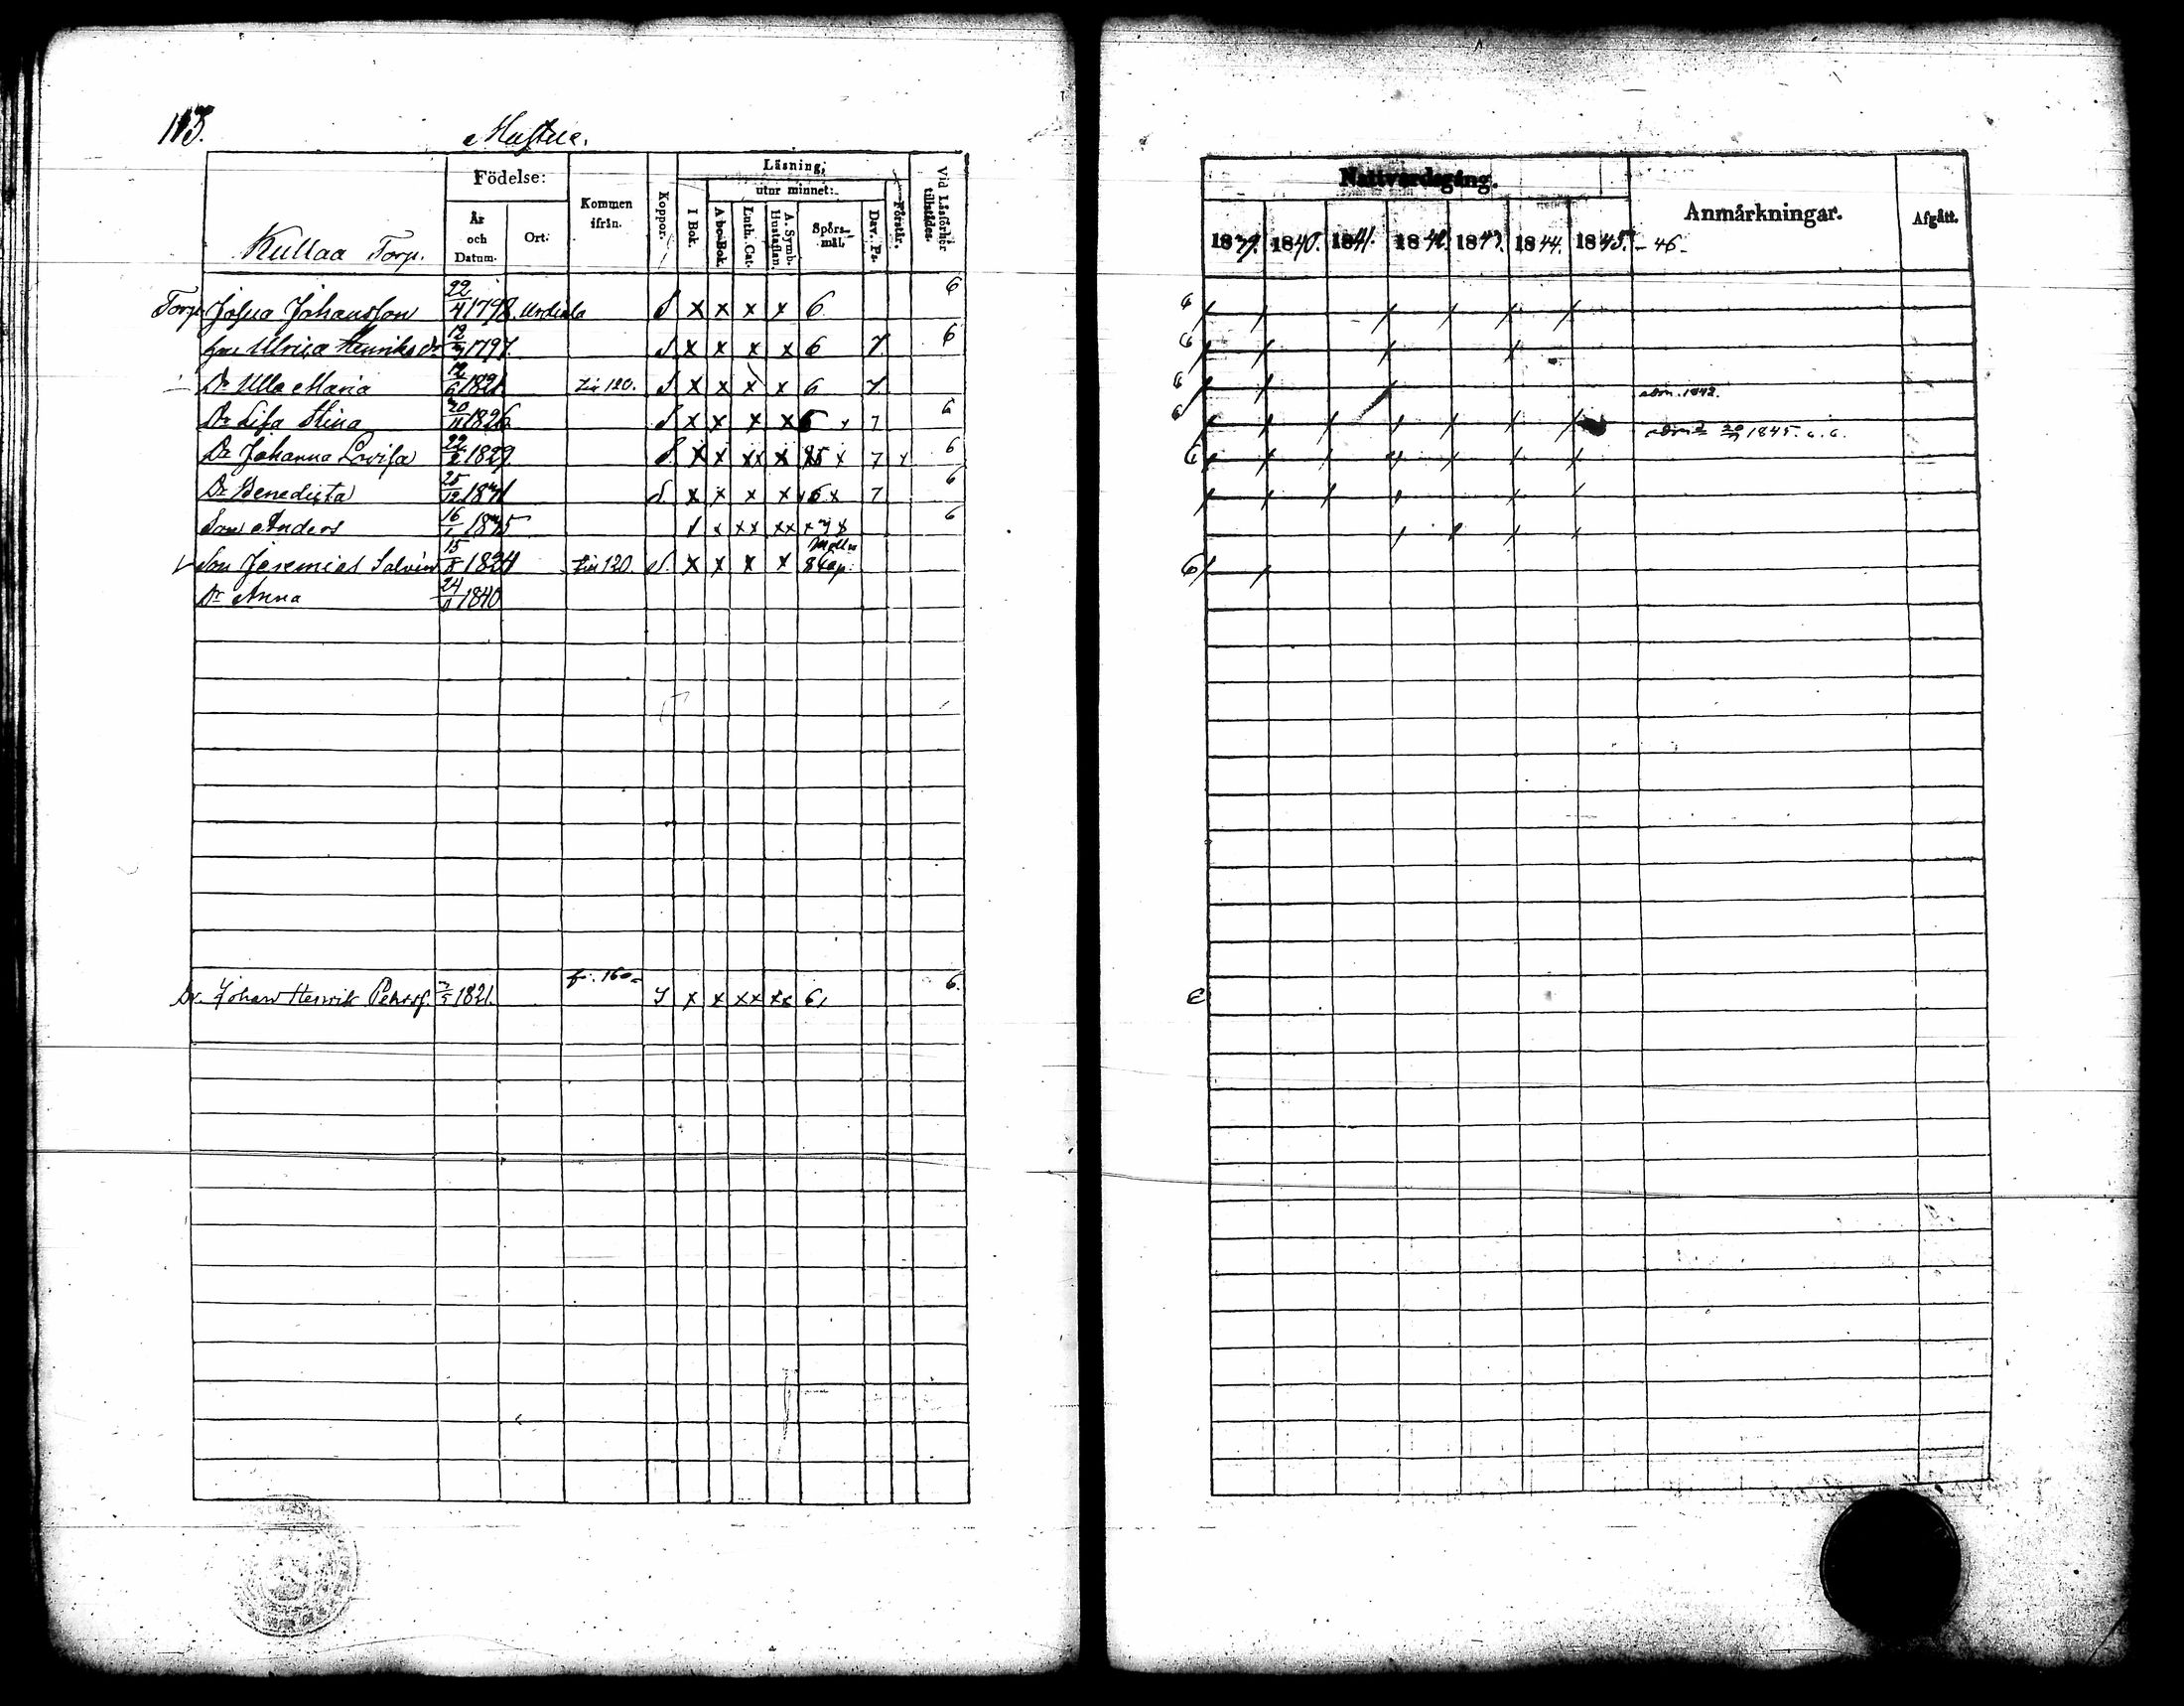 113.
Mustue.
Kullaa Torp.
Födelse:
År och Datum.
Ort.
Kommen ifrån.
Koppor.
Läsning,
I Bok.
utur minnet:
Abc-Bok.
Luth. Cat.
A. Symb. Hustaflan.
Spörsmål.
Dav. Ps.
Förstår.
Vid Läsförhör tillstädes.
Torp. Josua Johansson 22/4 1798. Urdiala S x x x x 6 6
Ulrica Henriksdr 1797. S x x x x 6 7 6
Dr Ulla Maria 12/6 1821 120. S x x x x 6 7
Dr Lisa Stina 1826 S x x x x 6 x 7 6
Dr Johanna Lovisa 22/2 1829 S x x xx x x 7 x 6
Dr Benedicta 25/12 1831 S. x x x x 6 x 7 6
Son Anders 16/1 1835 xx xx 6
Son Jeremias Salvin 15/8 1824 120. S. x x x x
Dr Anna 24/11 1840
Johan Henrik Pehrsf. 1821. fr. 160 S x x xx xx 6 6.
Nattvardsgång.
1839. 1840. 1841. 1842. 1843. 1844. 1845. - 46 -
Anmärkningar.
Afgått.
6 / / / / / /
6 / / / /
6 / / / 1842.
6 / / / / / / 1845.
6 / / / / / /
/ / / / / /
/ / / /
6 / /